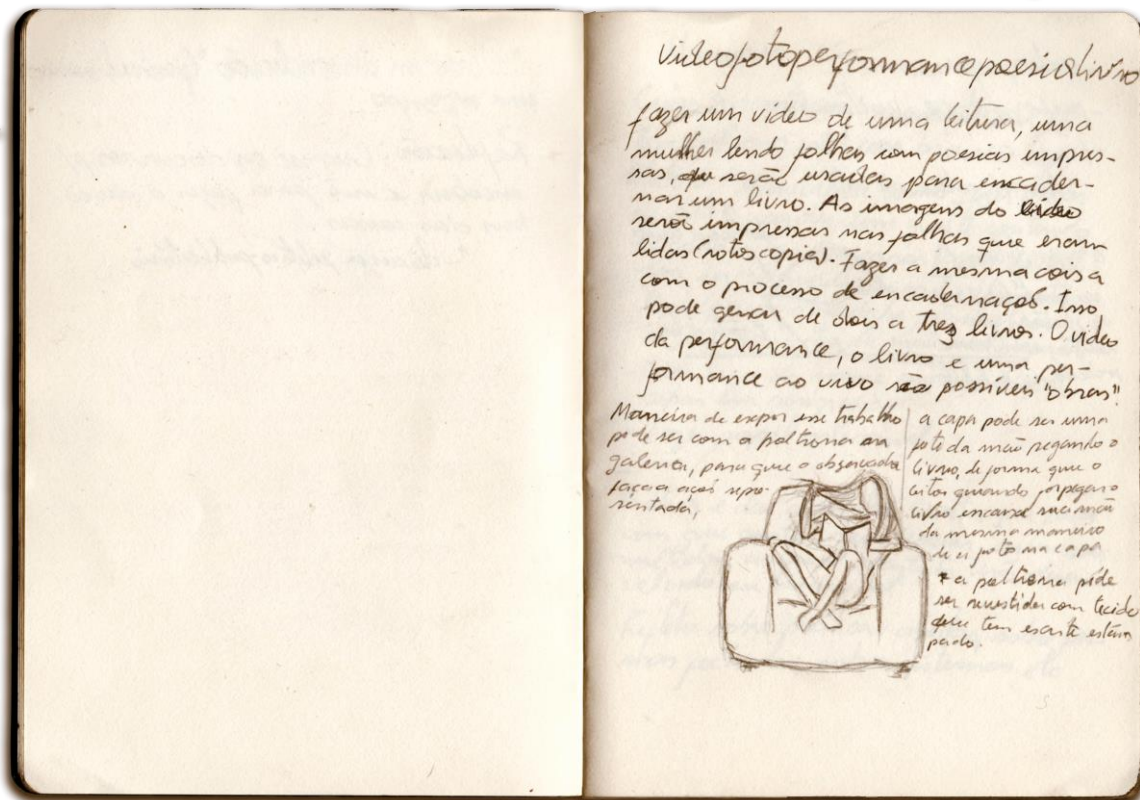 videofotoperformancepoesialivro
fazer um video de uma leitura, uma
mulher lendo folhas com poesias impres-
sas, que serão usadas para encader-
nar um livro. As imagens do video
serão impressas nas folhas que eram
lidas (rotoscopia). Fazer a mesma coisa
com o processo de encadernação. Isso
pode gerar de dois a três livros. O video
da performance, o livro e uma per-
formance ao vivo são possíveis "obras".
Maneira de expor esse trabalho
pode ser com a poltrona na
galeria, para que o observador
faça a ação repre-
sentada,
a capa pode ser uma
foto da mão pegando o
livro, de forma que o
leitor quando for pegar o
livro encaixe sua mão
da mesma maneira
da foto na capa
* a poltrona pode
ser revestida com tecido
que tem escrito estam
pado.